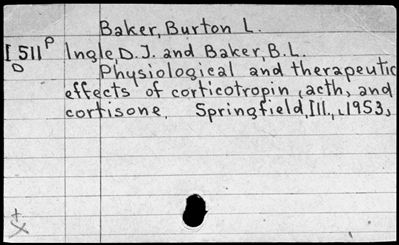 Baker, Burton L.
I 511 P Ingle, D.J. and Baker, B.L.
O Physiological and therapeutic
effects of corticotropin (acth) and
cortisone. Springfield, Ill., 1953.